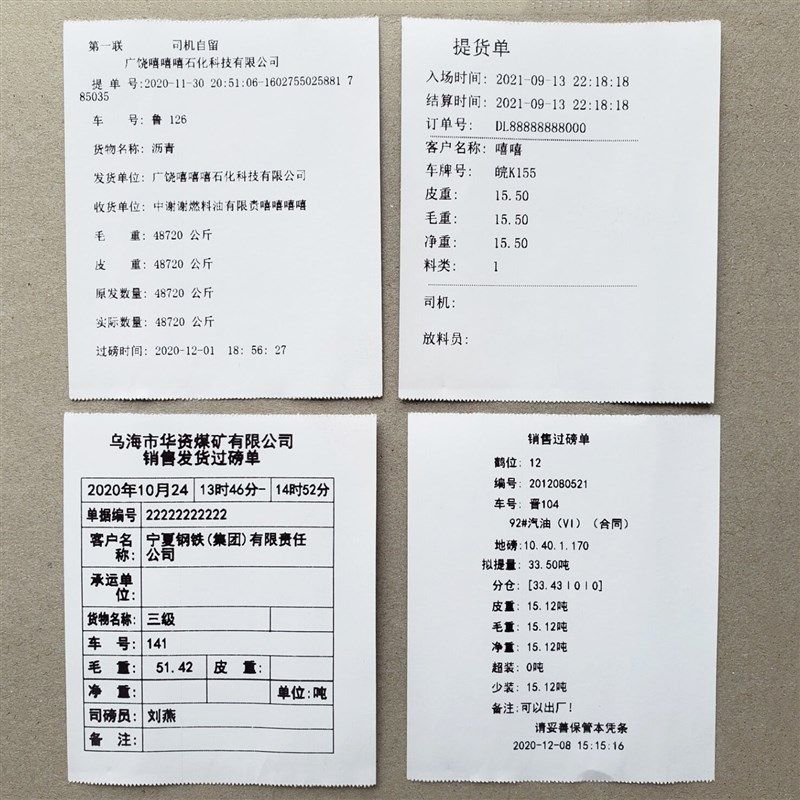 第一联 司机自留
广饶嘻嘻嘻石化科技有限公司
提 单 号:2020-11-30 20:51:06-1602755025881 7
85035
车 号: 鲁 126
货物名称: 沥青
发货单位: 广饶嘻嘻嘻石化科技有限公司
收货单位: 中谢谢燃料油有限责嘻嘻嘻嘻
毛 重: 48720 公斤
皮 重: 48720 公斤
原发数量: 48720 公斤
实际数量: 48720 公斤
过磅时间: 2020-12-01 18: 56: 27
提货单
入场时间: 2021-09-13 22:18:18
结算时间: 2021-09-13 22:18:18
订单号: DL88888888000
客户名称: 嘻嘻
车牌号: 皖K155
皮重: 15.50
毛重: 15.50
净重: 15.50
料类: 1
司机:
放料员:
乌海市华资煤矿有限公司
销售发货过磅单
2020年10月24 13时46分- 14时52分
单据编号 22222222222
客户名 宁夏钢铁(集团)有限责任
称: 公司
承运单
位:
货物名称: 三级
车 号: 141
毛 重: 51.42 皮 重:
净 重: 单位:吨
司磅员: 刘燕
备 注:
销售过磅单
鹤位: 12
编号: 2012080521
车号: 晋104
92#汽油（VI）（合同）
地磅:10.40.1.170
拟提量: 33.50吨
分仓: [33.43|0|0]
皮重: 15.12吨
毛重: 15.12吨
净重: 15.12吨
超装: 0吨
少装: 15.12吨
备注:可以出厂!
请妥善保管本凭条
2020-12-08 15:15:16